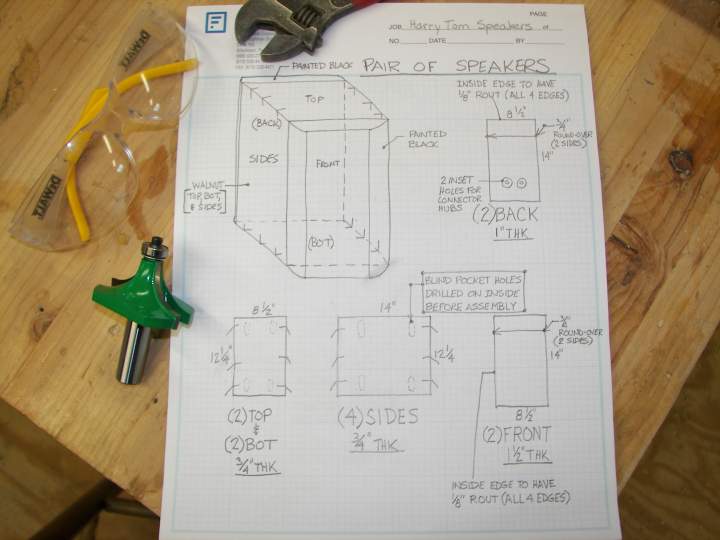 PAGE
JOB Harry Tom Speakers of
NO. DATE BY
PAINTED BLACK
PAIR OF SPEAKERS
TOP
(BACK)
SIDES
FRONT
(BOT)
PAINTED
BLACK
WALNUT
TOP, BOT,
& SIDES
INSIDE EDGE TO HAVE
1/8" ROUT (ALL 4 EDGES)
8 1/2"
3/4"
ROUND-OVER
(2 SIDES)
14"
2 INSET
HOLES FOR
CONNECTOR
HUBS
(2) BACK
1" THK
BLIND POCKET HOLES
DRILLED ON INSIDE
BEFORE ASSEMBLY
8 1/2"
12 1/4"
(2) TOP
&
(2) BOT
3/4" THK
14"
12 1/4
(4) SIDES
3/4" THK
ROUND-OVER
(2 SIDES)
14"
8 1/2
(2) FRONT
1 1/2" THK
INSIDE EDGE TO HAVE
1/8" ROUT (ALL 4 EDGES)
DEWALT
DEWALT